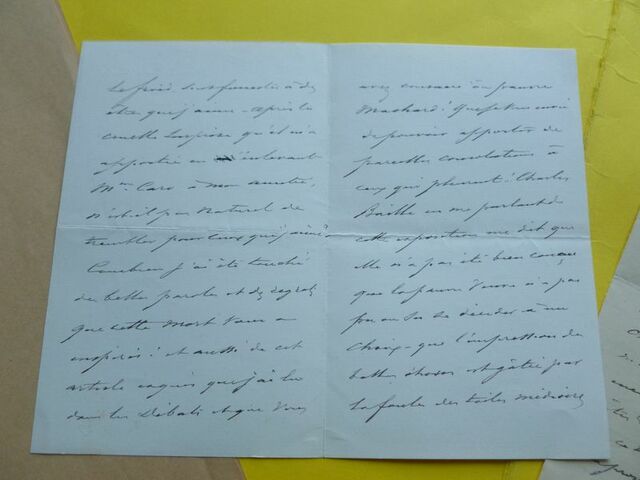 le froid si funestes à des
êtres que j'aime. Après la
cruelle surprise qu'il m'a
apportée en enlevant
Mme Caro à mon amitié,
n'est-il pas naturel de
trembler pour ceux qu'j'aime
Combien j'ai été touché
de belles paroles et des regrets
que cette mort vous a
inspirés! et aussi de cet
article exquis que j'ai lu
dans les Débats et que vous
avez consacré à ce pauvre
Machard! Que
de pouvoir apporter de
pareilles consolations à
ceux qui pleurent! Charles
Baille en me parlant de
cette exposition me dit que
elle n'a pas été bien conçue
que la pauvre veuve n'a pas
pu ou su se décider à un
choix - que l'impression de
belles choses est gâtée par
la foule des toiles médiocres